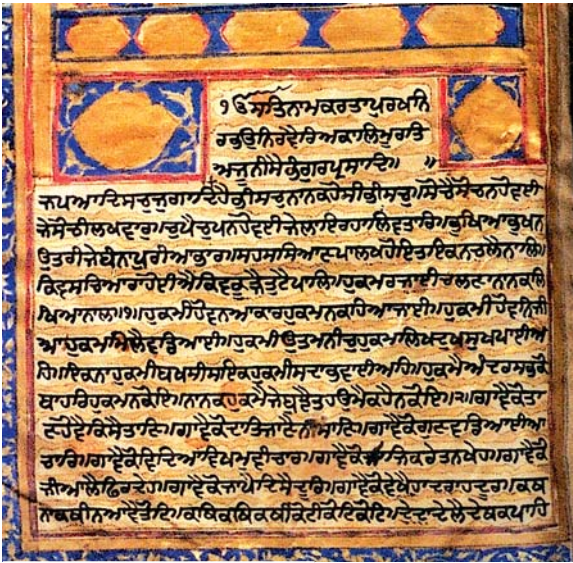 ੴਸਤਿਨਾਮਕਰਤਾਪੁਰਖਨਿ
ਰਭਉਨਿਰਵੈਰਿਅਕਾਲਿਮੂਰਤਿ
ਅਜੂਨੀਸੈਭੰਗੁਰਪ੍ਰਸਾਦਿ॥ ॥
ਜਪਆਦਿਸਚੁਜੁਗਾਦਿਹੈਭੀਸਚੁਨਾਨਕਹੋਸੀਭੀਸਚੁ॥ਸੋਚੈਸੋਚਨਹੋਵਈ
ਜੇਸੋਚੀਲਖਵਾਰ॥ਚੁਪੈਚੁਪਨਹੋਵਈਜੇਲਾਇਰਹਾਲਿਵਤਾਰਿ॥ਭੁਖਿਆਭੁਖਨ
ਉਤਰੀਜੇਬੰਨਪੁਰੀਆਭਾਰ॥ਸਹਸਸਿਆਣਪਾਲਖਹੋਇਤਇਕਨਚਲੈਨਾਲਿ॥
ਕਿਵਸਚਿਆਰਾਹੋਈਐਕਿਵਕੂੜੈਤੁਟੈਪਾਲਿ॥ਹੁਕਮਰਜਾਈਚਲਣਾਨਾਨਕਲਿ
ਖਿਆਨਾਲ॥੧॥ਹੁਕਮੀਹੋਵਨਆਕਾਰਹੁਕਮਨਕਹਿਆਜਾਈ॥ਹੁਕਮੀਹੋਵਨਿਜੀ
ਆਹੁਕਮਮਿਲੈਵਡਿਆਈ॥ਹੁਕਮੀਉਤਮਨੀਚਹੁਕਮਲਿਖਦੁਖਸੁਖਪਾਈਅ
ਹਿ॥ਇਕਨਾਹੁਕਮੀਬਖਸੀਸਇਕਹੁਕਮੀਸਦਾਭਵਾਈਅਹਿ॥ਹੁਕਮੈਅੰਦਰਸਭਕੋ
ਬਾਹਰਿਹੁਕਮਨਕੋਇ॥ਨਾਨਕਹੁਕਮੈਜੇਬੁਝੈਤਹਉਮੈਕਹੈਨਕੋਇ॥੨॥ਗਾਵੈਕੋਤਾ
ਣਹੋਵੈਕਿਸੈਤਾਣਿ॥ਗਾਵੈਕੋਦਾਤਿਜਾਣੈਨੀਸਾਣਿ॥ਗਾਵੈਕੋਗੁਣਵਡਿਆਈਆ
ਚਾਰਿ॥ਗਾਵੈਕੋਵਿਦਿਆਵਿਖਮੁਵੀਚਾਰ॥ਗਾਵੈਕੋਸਾਜਿਕਰੇਤਨਖੇਹ॥ਗਾਵੈਕੋ
ਜੀਆਲੈਫਿਰਦੇਹ॥ਗਾਵੈਕੋਜਾਪੈਦਿਸੈਦੂਰਿ॥ਗਾਵੈਕੋਵੇਖੈਹਾਦਰਾਹਦੂਰ॥ਕਥ
ਨਾਕਥੀਨਆਵੈਤੋਟਿ॥ਕਥਿਕਥਿਕਥੀਕੋਟੀਕੋਟਿਕੋਟਿ॥ਦੇਦਾਦੇਲੈਦੇਥਕਪਾਹਿ